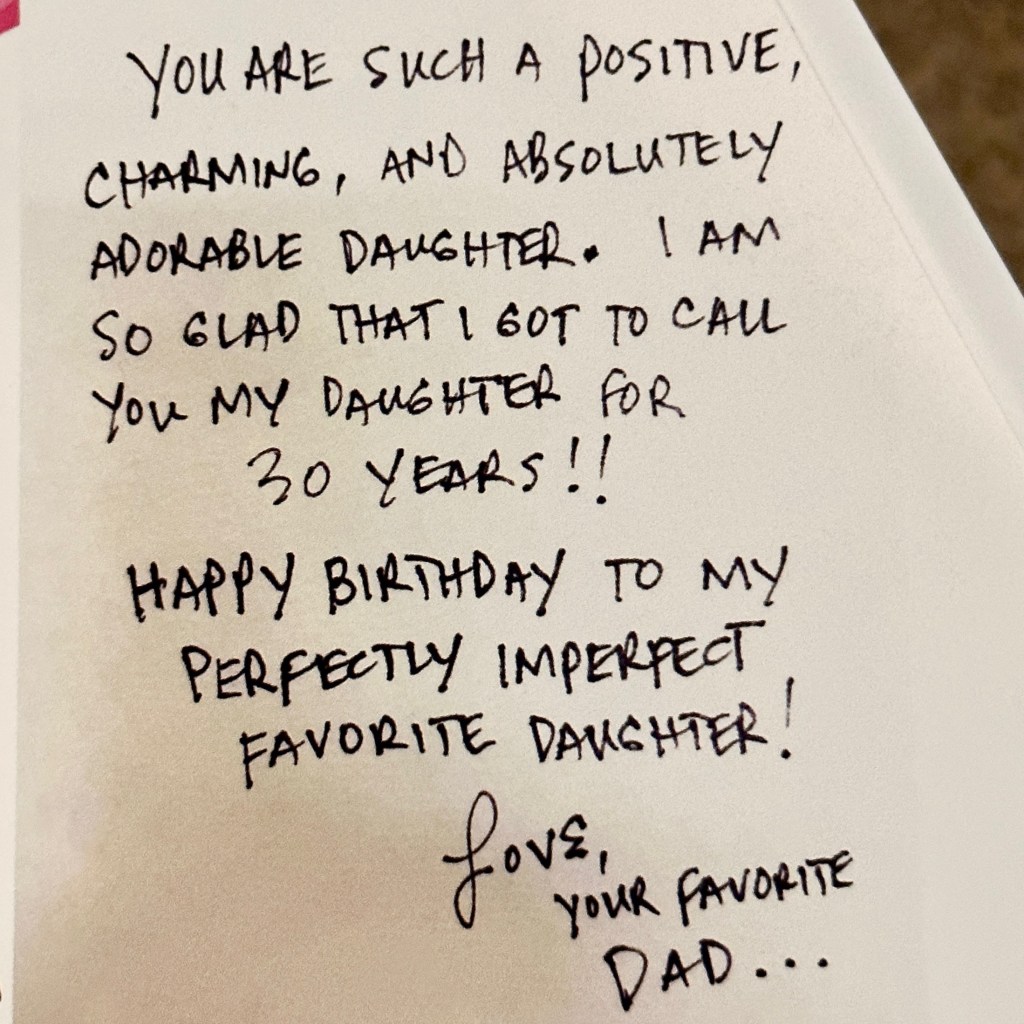 YOU ARE SUCH A POSITIVE,
CHARMING, AND ABSOLUTELY
ADORABLE DAUGHTER. I AM
SO GLAD THAT I GOT TO CALL
YOU MY DAUGHTER FOR
30 YEARS!!
HAPPY BIRTHDAY TO MY
PERFECTLY IMPERFECT
FAVORITE DAUGHTER!
Love,
YOUR FAVORITE
DAD...